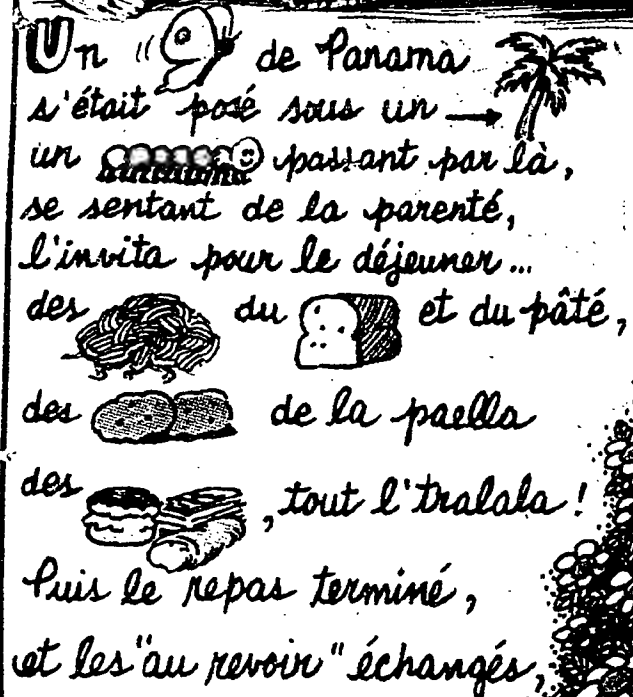 Un de Panama
s'était posé sous un
un passant par là,
se sentant de la parenté,
l'invita pour le déjeuner...
des du et du pâté,
des de la paella
des , tout l'tralala !
Puis le repas terminé,
et les "au revoir" échangés,